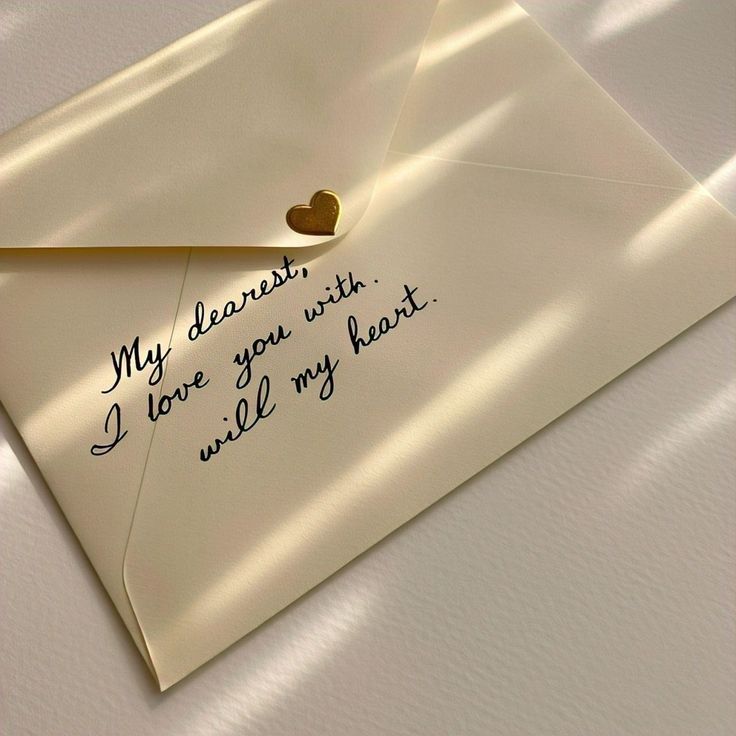 My dearest,
I love you with.
will my heart.